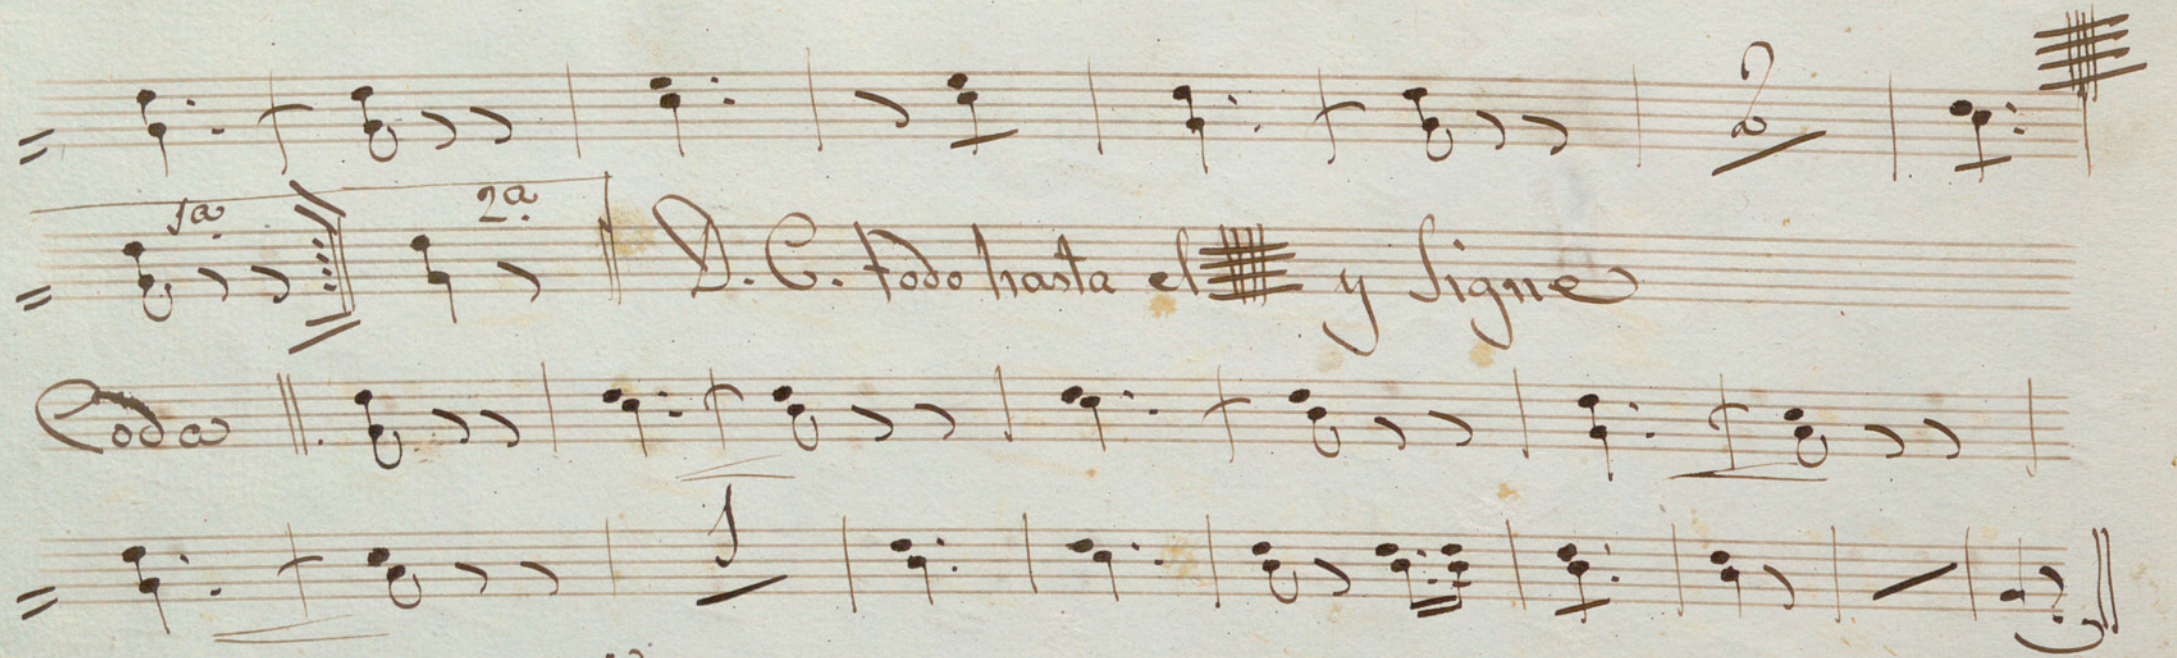 2
1a 2a D. C. todo hasta el y Sigue
Coda
1